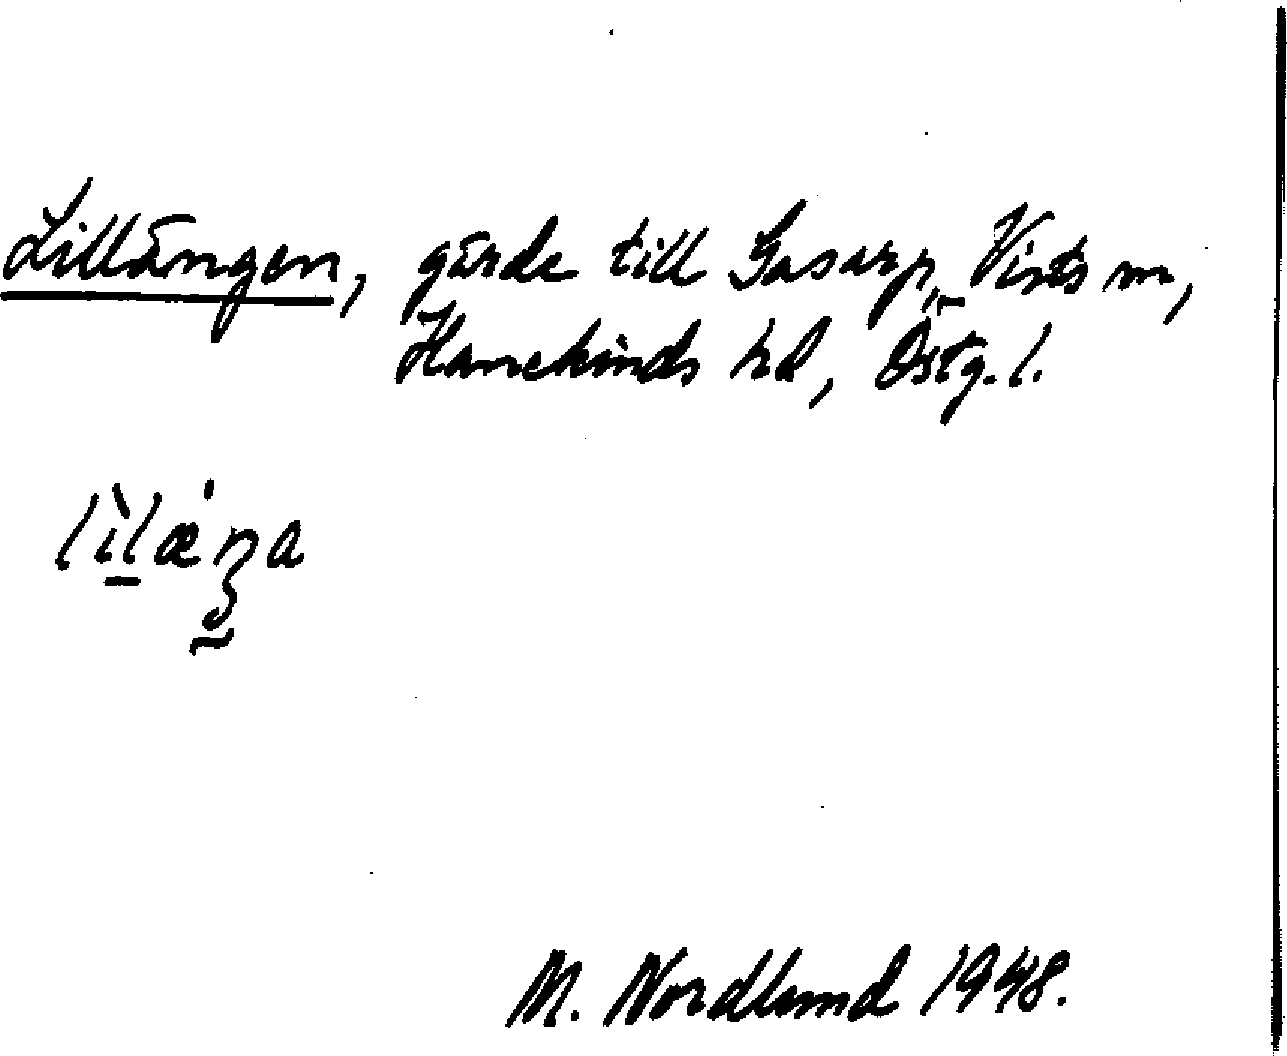 Lillängen, gärde till Gasarp, Vists sn,
Hanekinds hd, Östg. l.
lìlæ̇ŋa
M. Nordlund 1948.